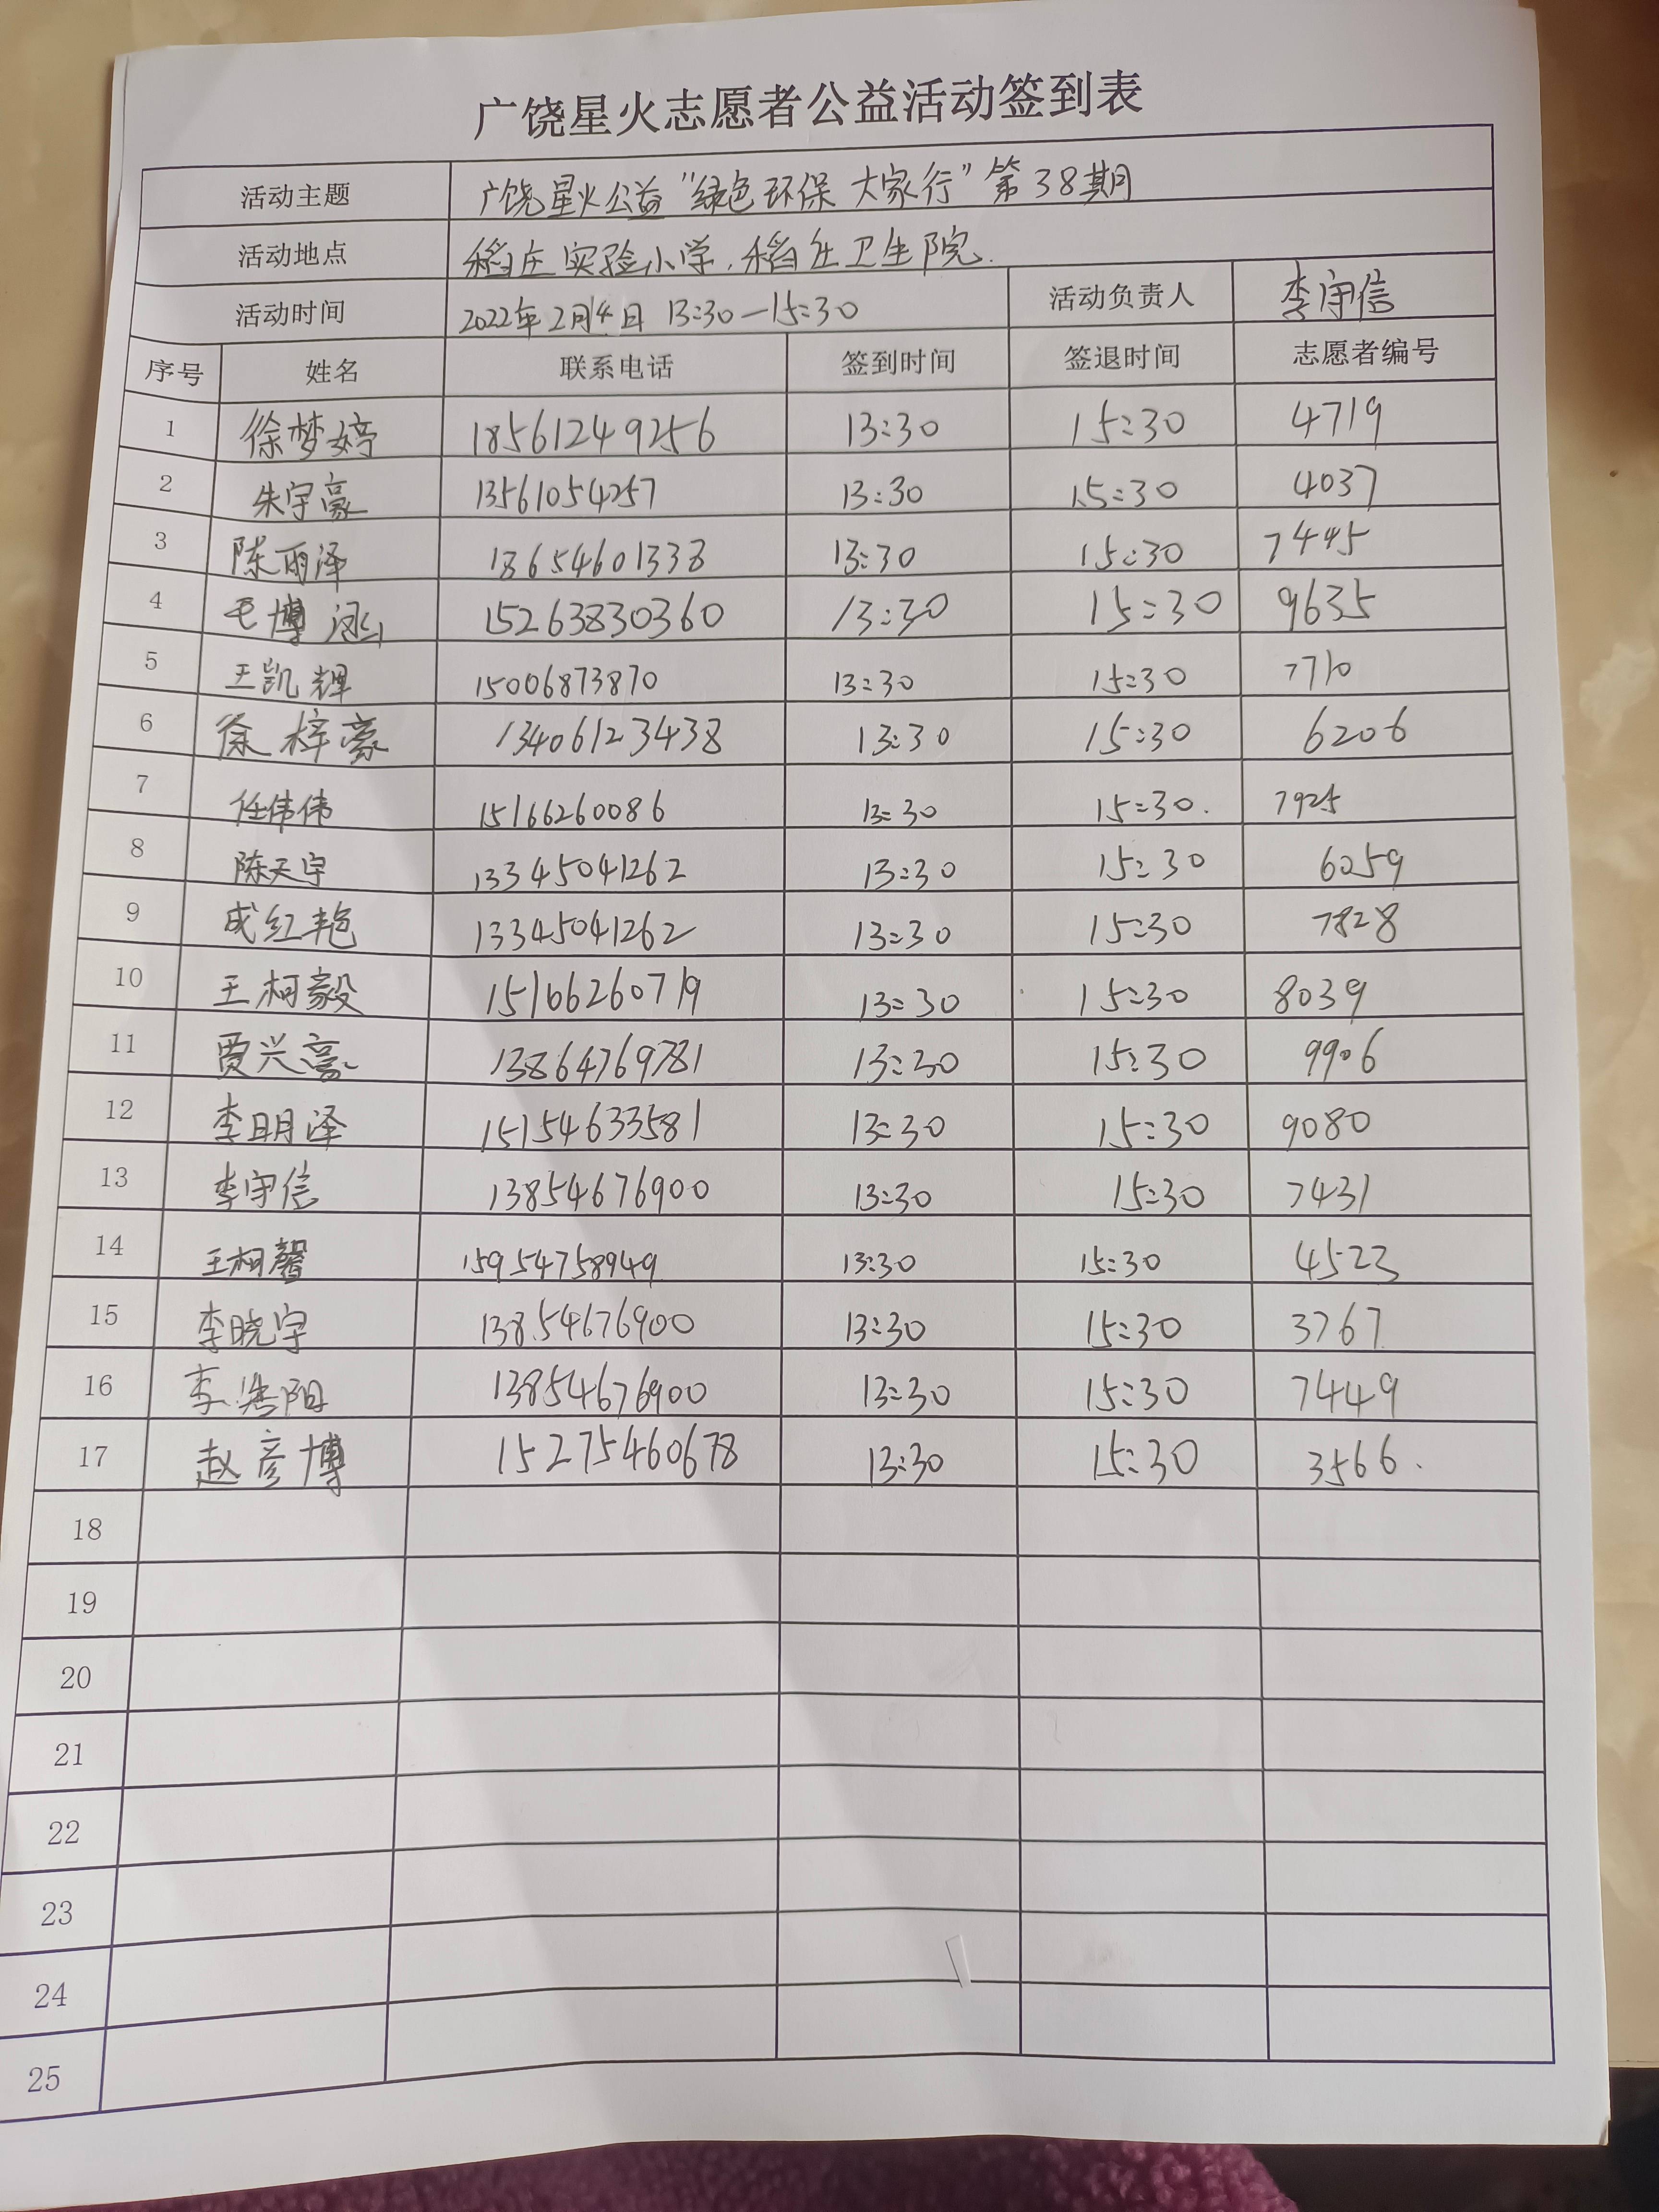 广饶星火志愿者公益活动签到表
活动主题 广饶星火公益“绿色环保 大家行”第38期
活动地点 稻庄实验小学、稻庄卫生院.
活动时间 2022年2月4日 13:30—15:30 活动负责人 李守信
序号 姓名 联系电话 签到时间 签退时间 志愿者编号
1 徐梦婷 18561249256 13:30 15:30 4719
2 朱宇豪 13561054257 13:30 15:30 4037
3 陈雨泽 18654601338 13:30 15:30 7445
4 毛博涵 15263830360 13:30 15:30 9635
5 王凯辉 15006873870 13:30 15:30 7710
6 徐梓豪 13406123438 13:30 15:30 6206
7 任伟伟 15166260086 13:30 15:30. 7925
8 陈天宇 13345041262 13:30 15:30 6059
9 成红艳 13345041262 13:30 15:30 7828
10 王柯毅 15166260719 13:30 15:30 8039
11 贾兴豪 13864769781 13:30 15:30 9906
12 李明泽 15154633581 13:30 15:30 9080
13 李守信 13854676900 13:30 15:30 7431
14 王柯馨 15954758949 13:30 15:30 4523
15 李晓宇 13854676900 13:30 15:30 3767
16 李浩阳 13854676900 13:30 15:30 7449
17 赵彦博 15275460678 13:30 15:30 3566.
18
19
20
21
22
23
24
25